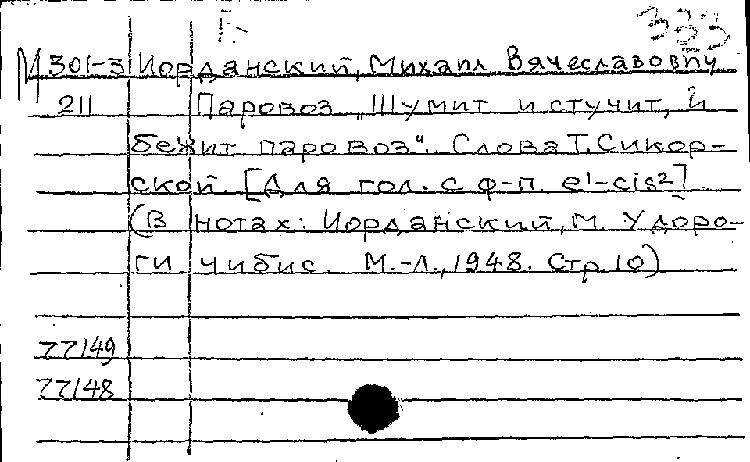 Г. 333
М 301-3 Иорданский, Михаил Вячеславович
211 Паровоз „Шумит и стучит, и
бежит паровоз". Слова Т. Сикор-
ской. [Для гол. с ф-п. e¹-cis²]
(В нотах: Иорданский, М. У доро-
ги чибис. М.-Л., 1948. Стр. 10)
77149
77148